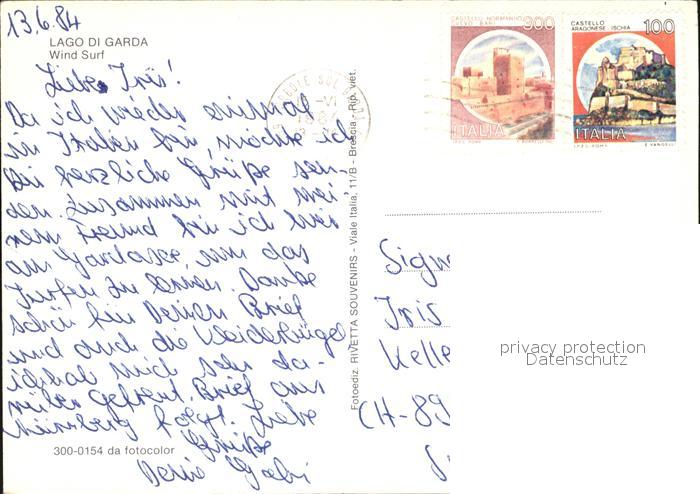 13.6.84
LAGO DI GARDA
Wind Surf
Liebe Iris!
Da ich wieder einmal
in Italien bin, möchte ich
Dir herzliche Grüße sen-
den. Zusammen mit mei-
nem Freund bin ich hier
am Gardasee um das
Surfen zu lernen. Danke
schön für Deinen Brief
und auch die Kleiderbügel,
ich hab mich sehr da-
rüber gefreut. Brief aus
Nürnberg folgt. Liebe
Grüße
Deine Gabi
300-0154 da fotocolor
Fotoediz. RIVETTA SOUVENIRS - Viale Italia, 11/B - Brescia - Rip. viet.
CASTELLO NORMANNO
SVEVO BARI
300
ITALIA
I.P.Z.S. ROMA
CASTELLO
ARAGONESE - ISCHIA
100
ITALIA
I.P.Z.S. ROMA
E. VANGELLI
Sign
Iris
Kelle
CH-89
privacy protection
Datenschutz